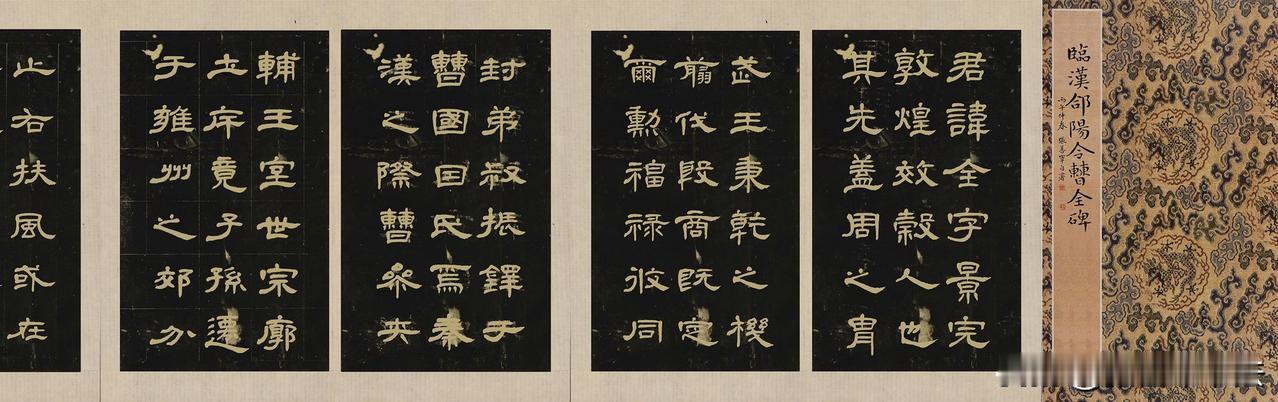 臨漢郃陽令曹全碑
丙午仲春
君諱全字景完
敦煌效穀人也
其先蓋周之胄
武王秉乾之機
翦伐殷商既定
爾勳福祿攸同
封弟叔振鐸于
曹國因氏焉秦
漢之際曹參夾
輔王室世宗廓
土斥竟子孫遷
于雍州之郊分
止右扶風或在